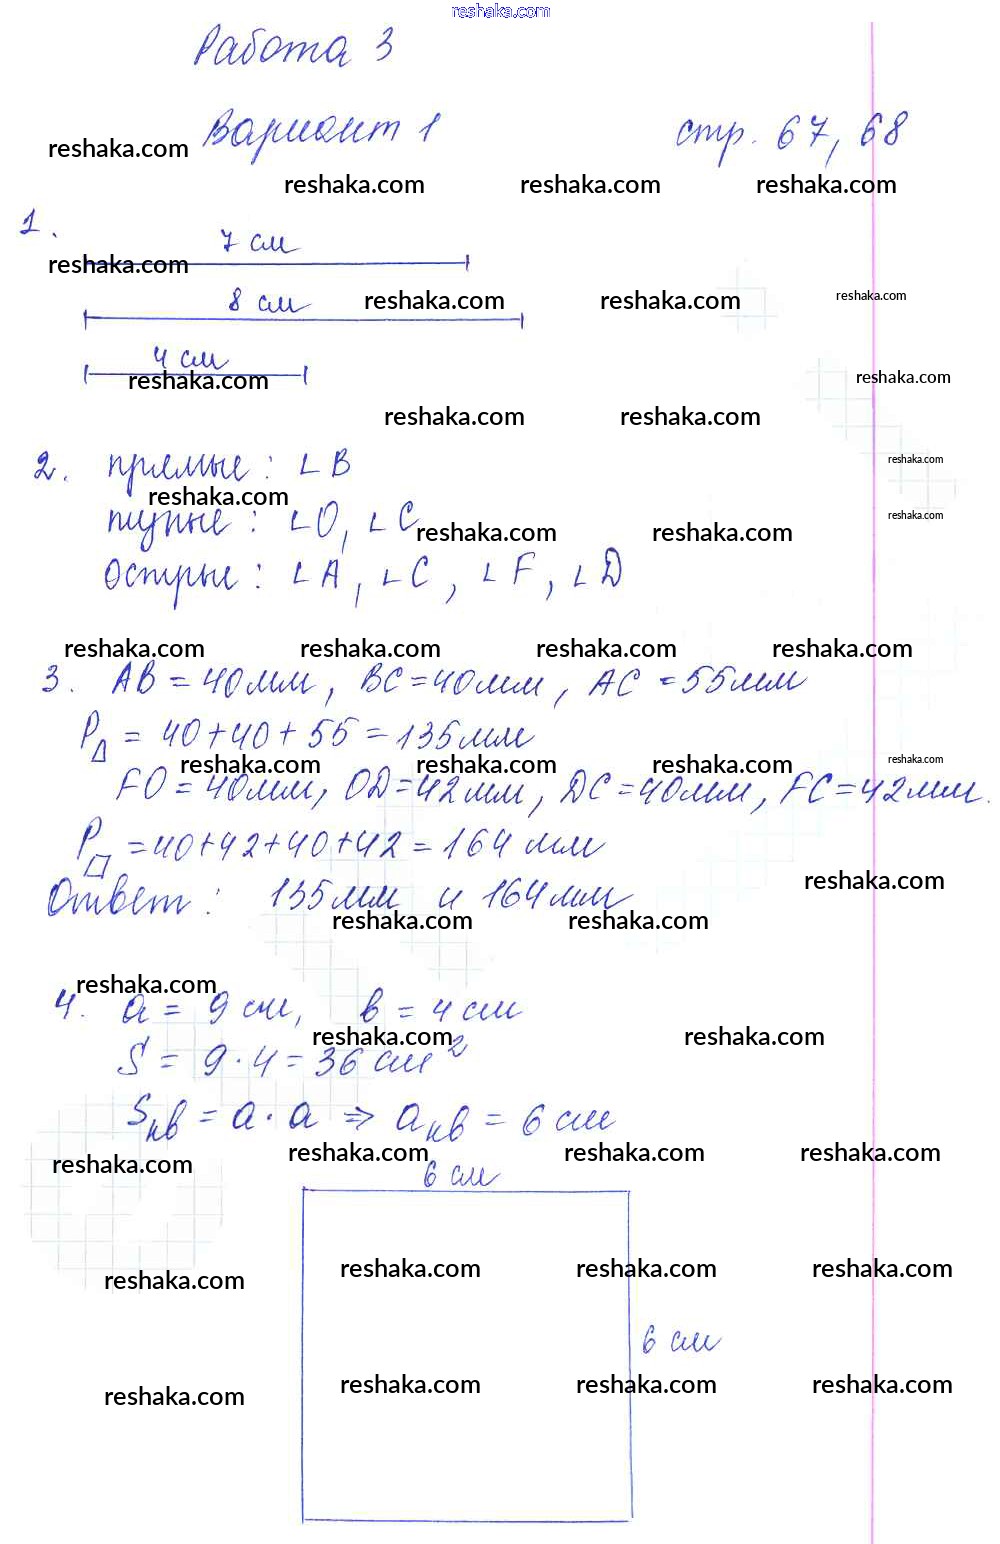 reshaka.com
Работа 3
Вариант 1 стр. 67, 68
reshaka.com
reshaka.com reshaka.com reshaka.com
1.
7 см
reshaka.com
8 см
reshaka.com reshaka.com reshaka.com
4 см
reshaka.com reshaka.com
reshaka.com reshaka.com
2. прямые: ∟B
reshaka.com reshaka.com
тупые: ∟O, ∟C
reshaka.com reshaka.com reshaka.com
Острые: ∟A, ∟C, ∟F, ∟D
reshaka.com reshaka.com reshaka.com reshaka.com
3. AB = 40мм, BC = 40мм, AC = 55мм
P△ = 40 + 40 + 55 = 135мм
reshaka.com reshaka.com reshaka.com reshaka.com
FO = 40мм, OD = 42мм, DC = 40мм, FC = 42мм.
P▱ = 40 + 42 + 40 + 42 = 164 мм
reshaka.com
Ответ: 135мм и 164мм
reshaka.com reshaka.com
reshaka.com
4. a = 9 см, в = 4 см
reshaka.com reshaka.com
S = 9 · 4 = 36 см²
Sкв = a · a ⇒ aкв = 6 см
reshaka.com reshaka.com reshaka.com
reshaka.com
6 см
reshaka.com reshaka.com reshaka.com
reshaka.com
6 см
reshaka.com reshaka.com reshaka.com
reshaka.com